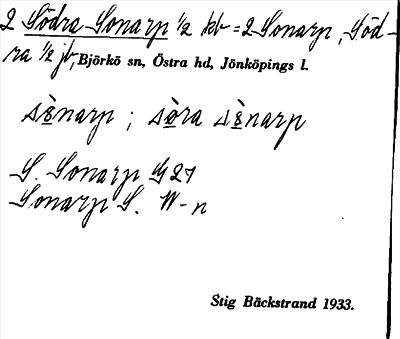 2 Södra Sonarp ½ kb = 2 Sonarp, Söd-
ra ½ jb, Björkö sn, Östra hd, Jönköpings l.
sènarp ; sòra sènarp
S. Sonarp G 27
Sonarp S. W-n
Stig Bäckstrand 1933.